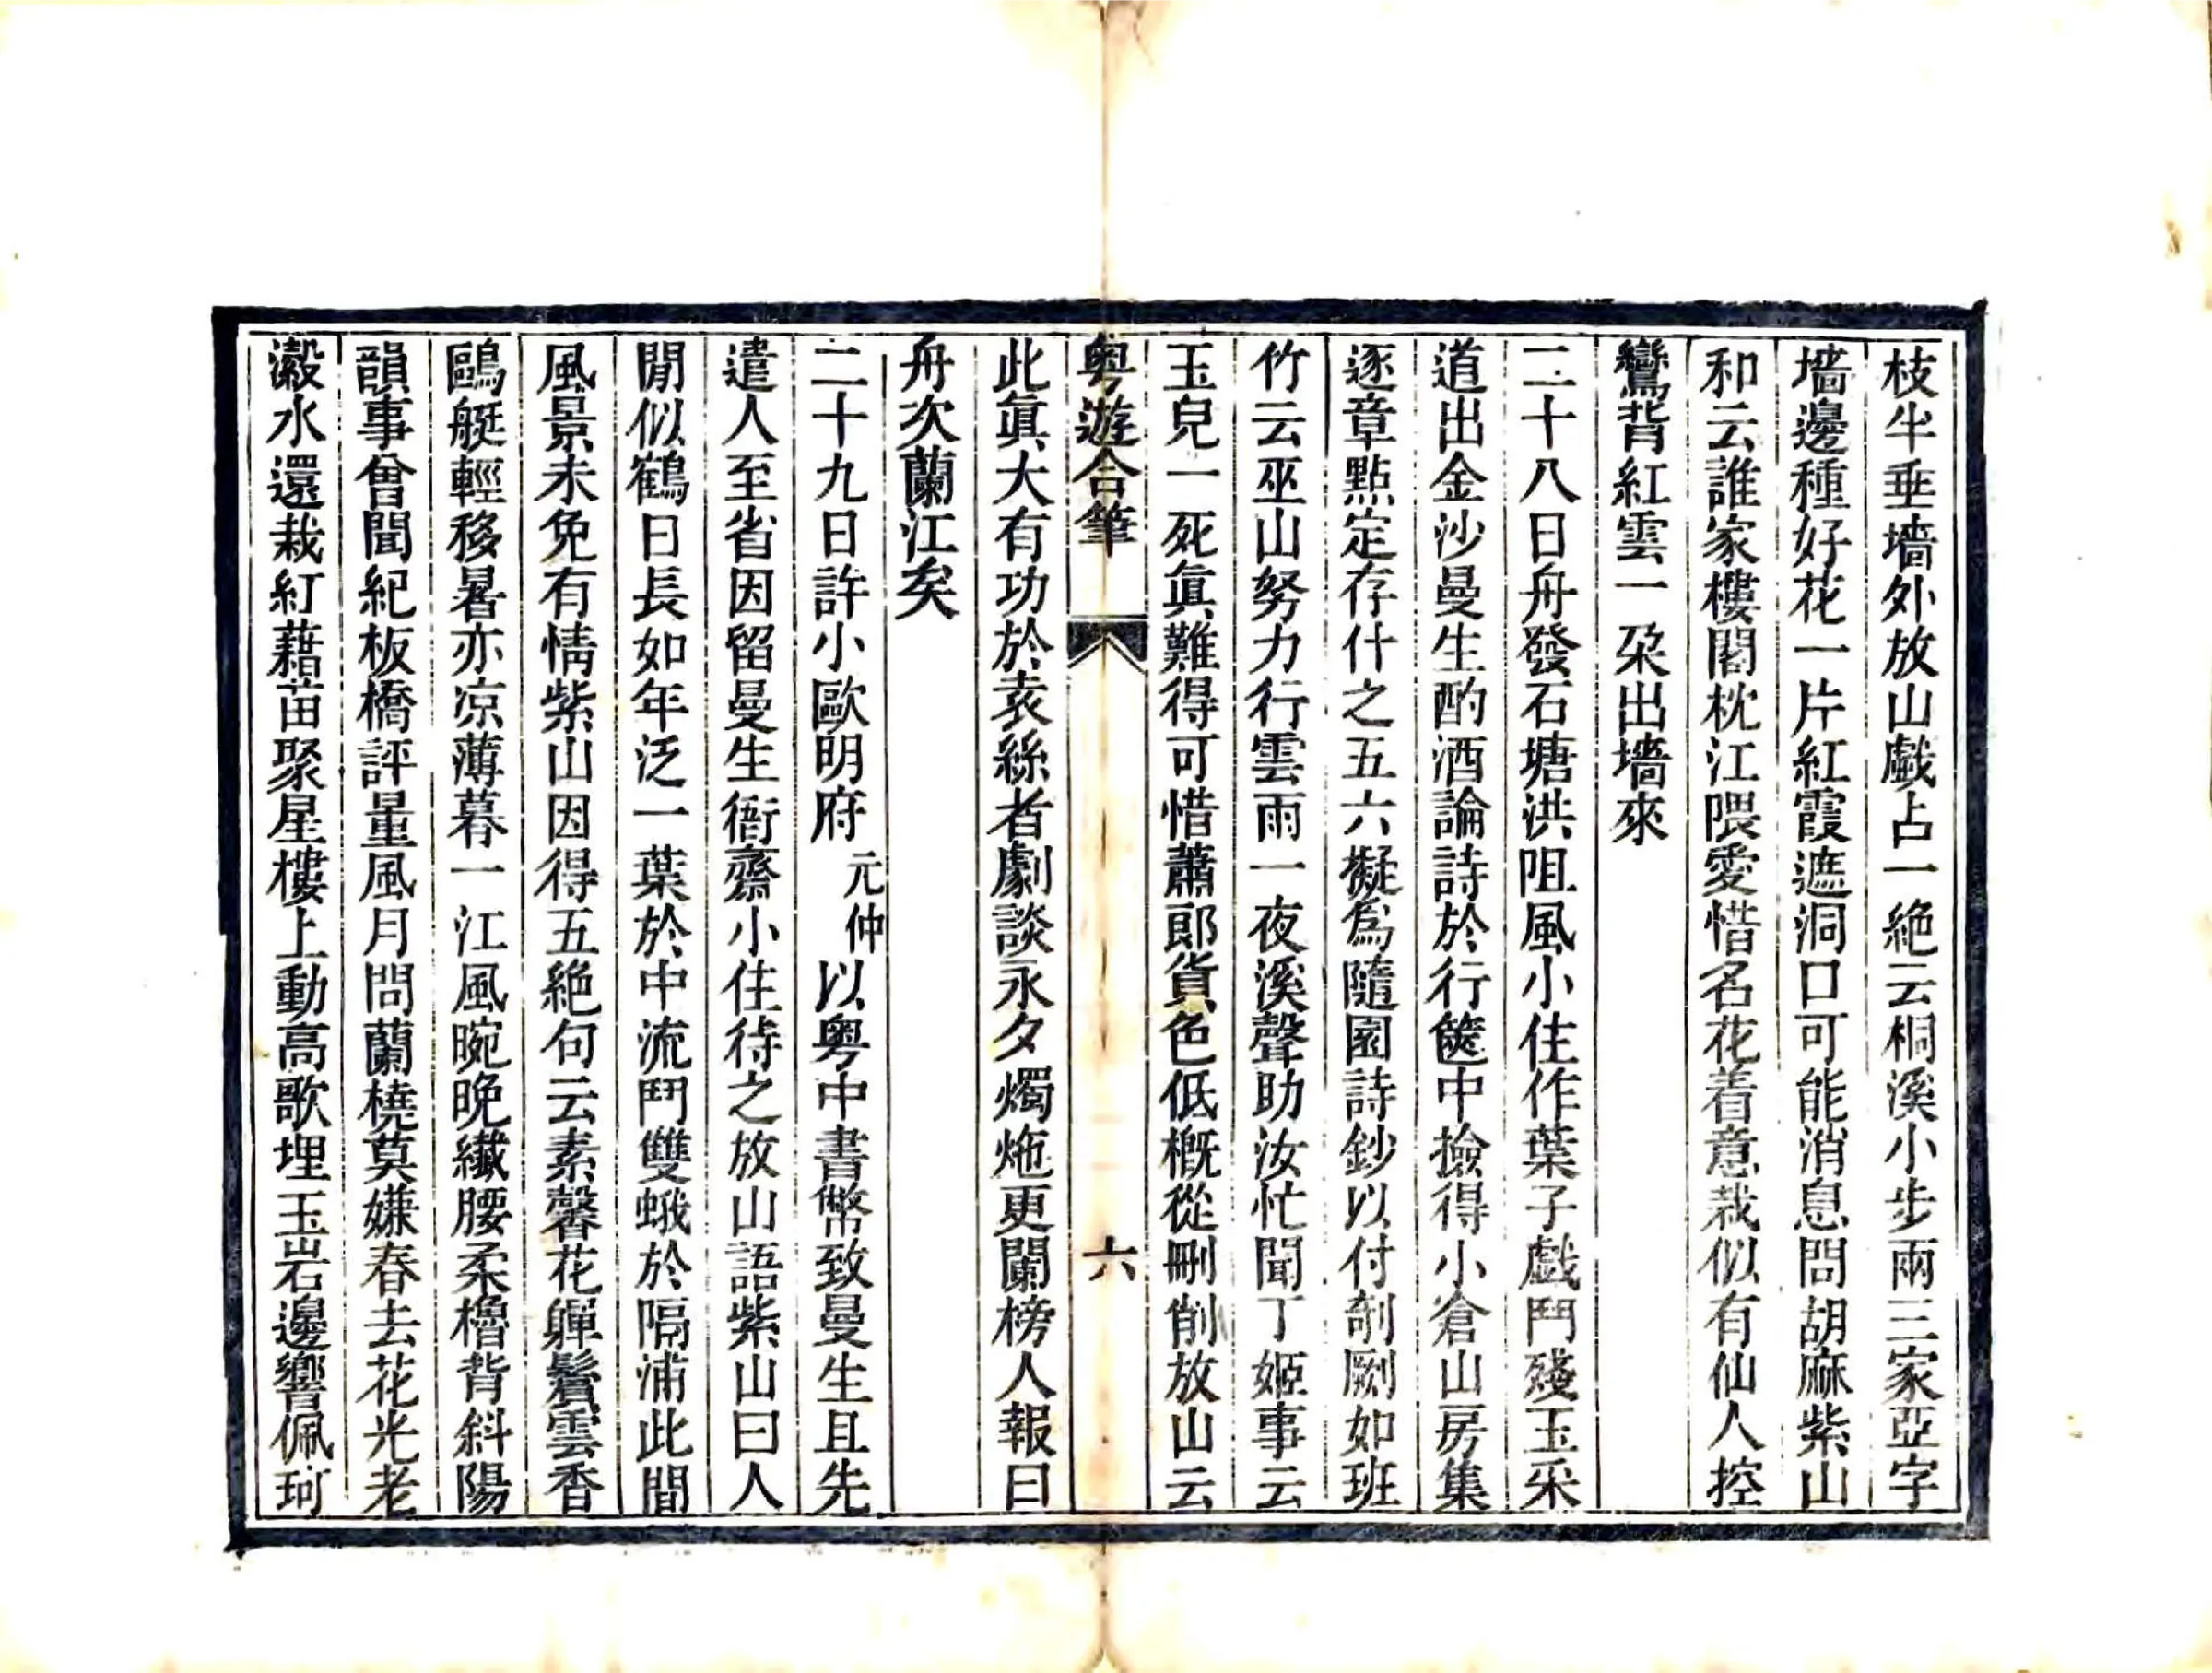 枝半垂墻外放山戯占一絶云桐溪小步兩三家亞字
墻邊種好花一片紅霞遮洞口可能消息問胡麻紫山
和云誰家樓閣枕江隈愛惜名花着意栽似有仙人控
鸞背紅雲一朶出墻來
二十八日舟發石塘洪阻風小住作葉子戯鬥殘玉采
道出金沙曼生酌酒論詩於行篋中撿得小倉山房集
逐章點定存什之五六擬爲隨園詩鈔以付剞劂如班
竹云巫山努力行雲雨一夜溪聲助汝忙聞丁姬事云
玉兒一死眞難得可惜蕭郎貨色低槪從刪削放山云
粤遊合筆
六
此眞大有功於袁絲者劇談永夕燭灺更闌榜人報曰
舟次蘭江矣
二十九日許小歐明府元仲以粤中書幣致曼生且先
遣人至省因留曼生衙齋小住待之放山語紫山曰人
閒似鶴日長如年泛一葉於中流鬥雙蛾於隔浦此間
風景未免有情紫山因得五絶句云素馨花嚲鬢雲香
鷗艇輕移暑亦凉薄暮一江風晼晚纎腰柔櫓背斜陽
韻事曾聞紀板橋評量風月問蘭橈莫嫌春去花光老
瀫水還栽紅藉苗聚星樓上動高歌埋玉岩邊響佩珂